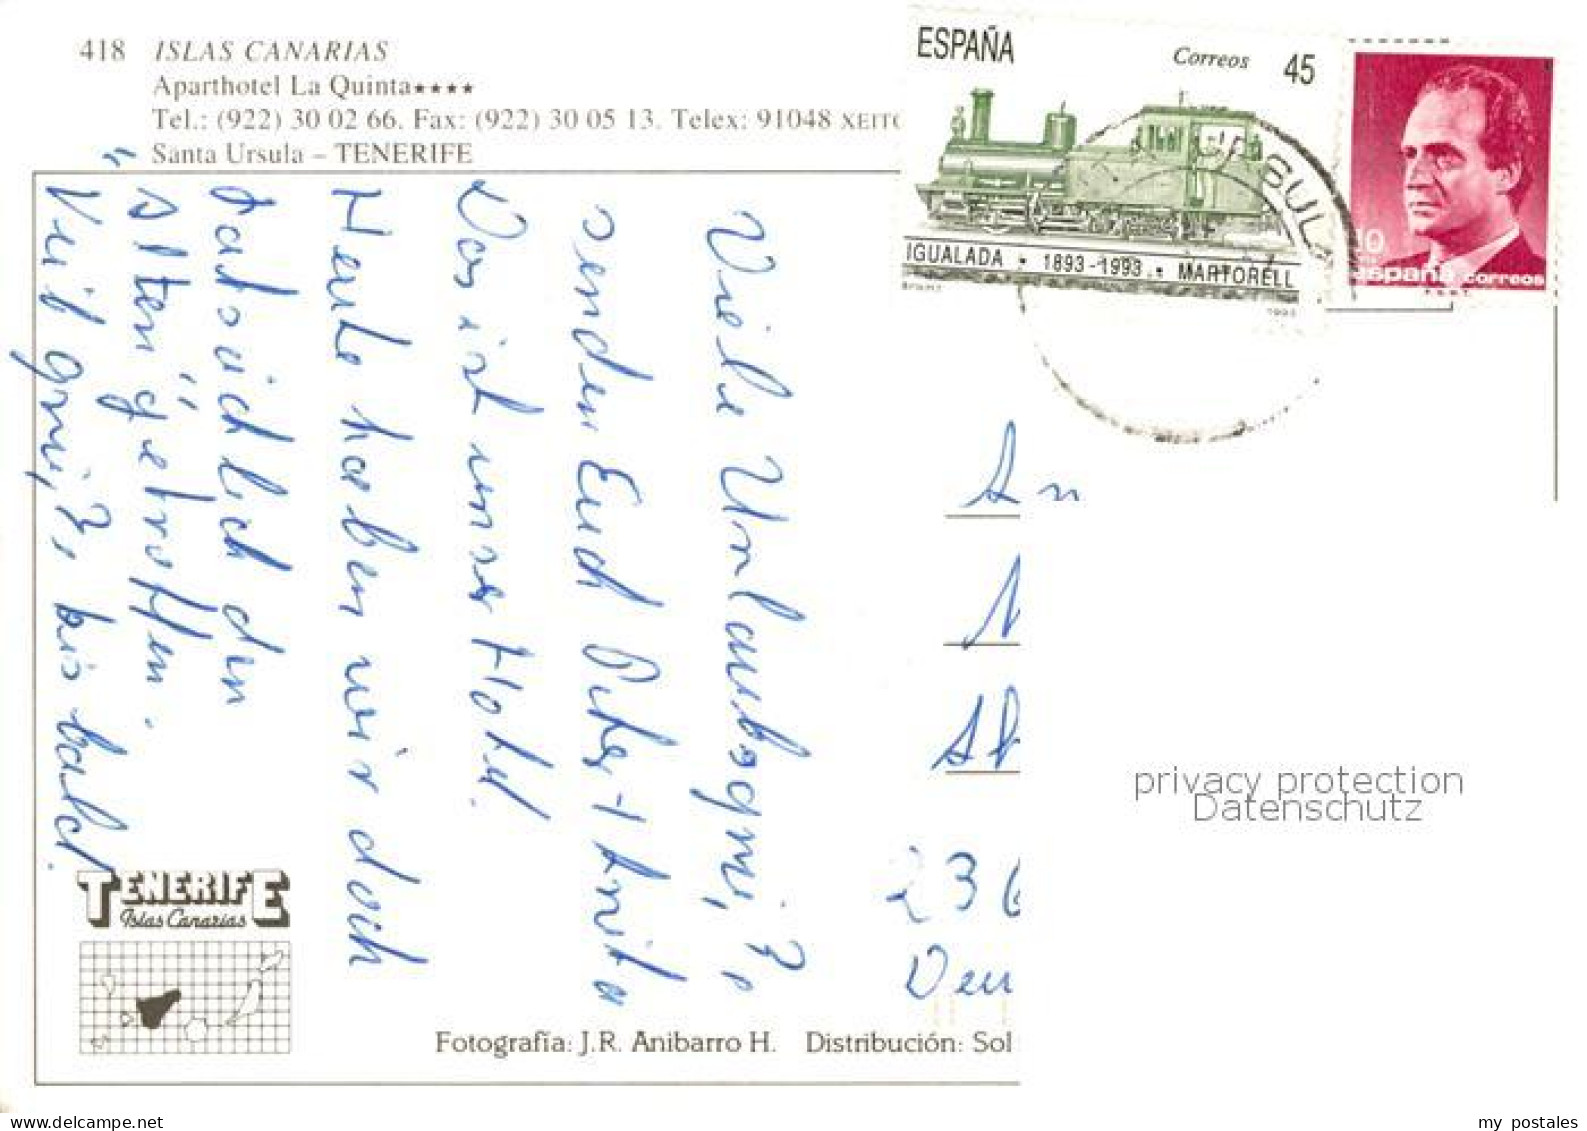 418 ISLAS CANARIAS
Aparthotel La Quinta★★★★
Tel.: (922) 30 02 66. Fax: (922) 30 05 13. Telex: 91048 XEITO
Santa Ursula – TENERIFE
ESPAÑA
Correos 45
IGUALADA • 1893-1993 • MARTORELL
1993
10
españa correos
F.N.M.T.
SULA
Viele Urlaubsgrüße
senden Euch Peter + Anita
Das ist unser Hotel.
Heute haben wir doch
tatsächlich den
"Alten" getroffen.
Viel grüße, bis bald.
An
A
236
Deu
privacy protection
Datenschutz
TENERIFE
Islas Canarias
Fotografía: J.R. Anibarro H. Distribución: Sol
my postales